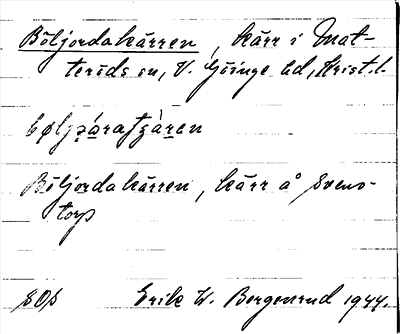 Böljordakärren, kärr i Mat-
teröds sn, V. Göinge hd, Krist. l.
Böljordakärren, kärr å Svens-
torp
SOS Erik W. Bergenrud 1944.